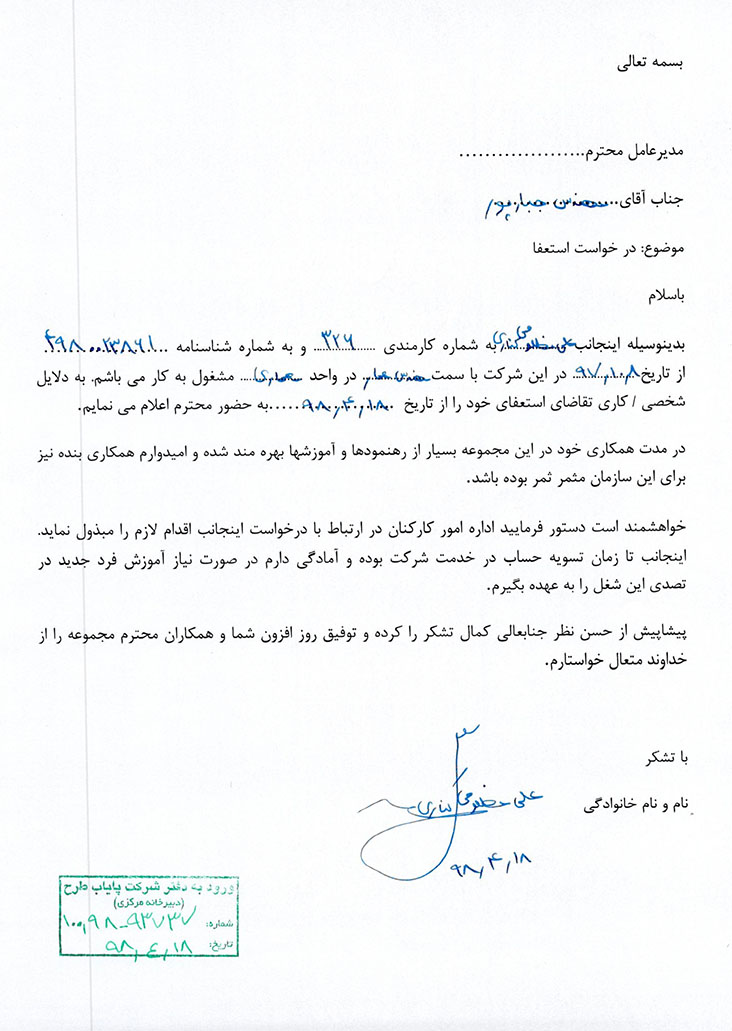 بسمه تعالی
مدیرعامل محترم....................
جناب آقای....مهندس جبارپور
موضوع: در خواست استعفا
باسلام
بدینوسیله اینجانب علی مظلومی کناری به شماره کارمندی ۳۲۶ و به شماره شناسنامه ۴۹۸۰۰۲۳۸۶۱
از تاریخ ۹۷،۱۰،۸ در این شرکت با سمت مهندس معمار در واحد معماری مشغول به کار می باشم. به دلایل
شخصی / کاری تقاضای استعفای خود را از تاریخ ۹۸،۴،۱۸ به حضور محترم اعلام می نمایم.
در مدت همکاری خود در این مجموعه بسیار از رهنمودها و آموزشها بهره مند شده و امیدوارم همکاری بنده نیز
برای این سازمان مثمر ثمر بوده باشد.
خواهشمند است دستور فرمایید اداره امور کارکنان در ارتباط با درخواست اینجانب اقدام لازم را مبذول نماید.
اینجانب تا زمان تسویه حساب در خدمت شرکت بوده و آمادگی دارم در صورت نیاز آموزش فرد جدید در
تصدی این شغل را به عهده بگیرم.
پیشاپیش از حسن نظر جنابعالی کمال تشکر را کرده و توفیق روز افزون شما و همکاران محترم مجموعه را از
خداوند متعال خواستارم.
با تشکر
نام و نام خانوادگی علی مظلومی کناری
۹۸،۴،۱۸
ورود به دفتر شرکت پایاب طرح
(دبیرخانه مرکزی)
شماره: ۱۰۰،۹۸-۹۳۷۳۷
تاریخ: ۹۸،٤،۱۸